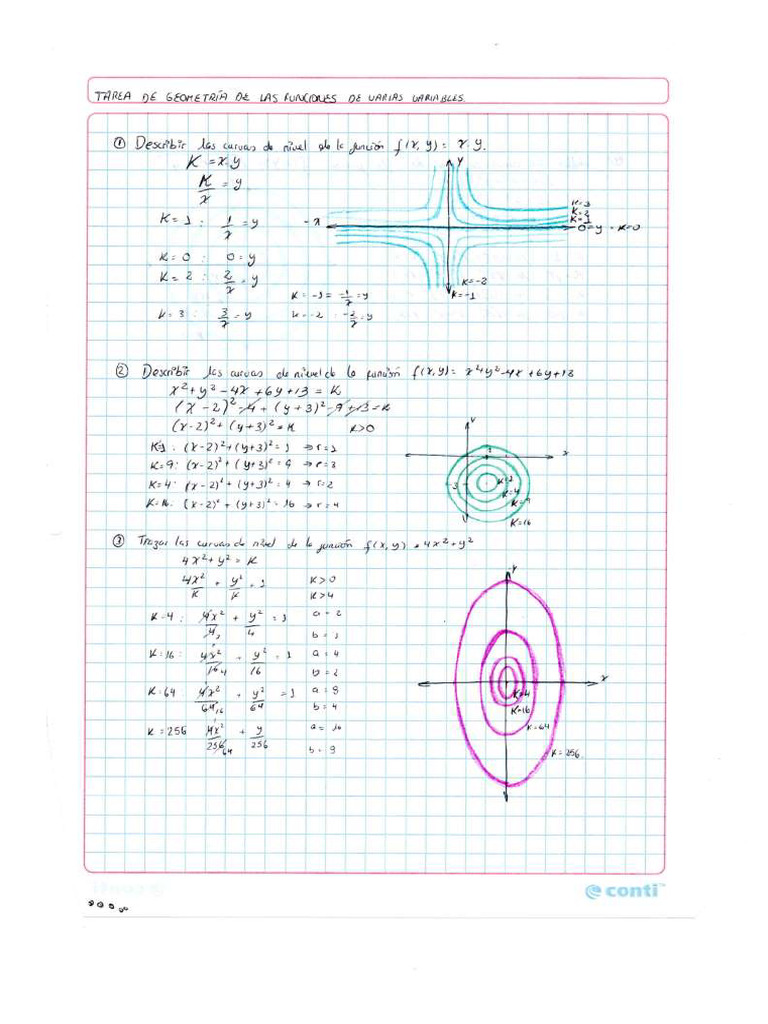 TAREA DE GEOMETRÍA DE LAS FUNCIONES DE VARIAS VARIABLES.
① Describir las curvas de nivel de la función f(x,y) = x.y.
K = x.y
K/x = y
K=1 : 1/x = y
K=0 : 0=y
K=2 : 2/x = y
K=3 : 3/x = y
K=-1 = -1/x = y
K=-2 : -2/x = y
y
-x
K=3
K=2
K=1
0=y - K=0
K=-2
K=-1
② Describir las curvas de nivel de la función f(x,y) = x²y²-4x+6y+13
x²+y²-4x+6y+13=K
(x-2)²-4+(y+3)²-9+13=K
(x-2)²+(y+3)²=K K>0
K=1 : (x-2)²+(y+3)²=1 → r=1
K=9: (x-2)²+(y+3)²=9 → r=3
K=4: (x-2)²+(y+3)²=4 → r=2
K=16: (x-2)²+(y+3)²=16 → r=4
y
x
-3
K=4
K=9
K=16
③ Trazar las curvas de nivel de la función f(x,y) = 4x²+y²
4x²+y²=K
4x²/K + y²/K = 1 K>0
K>4
K=4 : 4x²/4 + y²/4 = 1 a=2
b=1
K=16: 4x²/16 4 + y²/16 = 1 a=4
b=2
K=64: 4x²/64 16 + y²/64 = 1 a=8
b=4
K=256 4x²/256 64 + y/256 a=16
b=9
y
x
K=4
K=16
K=64
K=256
conti™